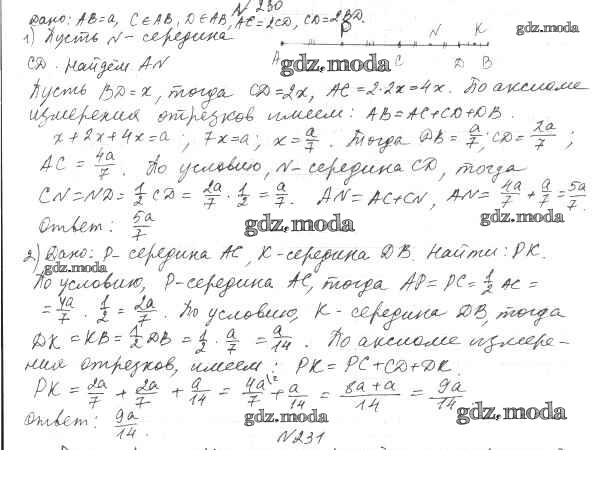 N 230
Дано: AB=a, C∈AB, D∈AB, AC=2CD, CD=2BD.
1) Пусть N-середина
P N K
gdz.moda
CD. Найдём AN
A C D B
gdz.moda
Пусть BD=x, тогда CD=2x, AC=2·2x=4x. По аксиоме
измерения отрезков имеем: AB=AC+CD+DB.
x+2x+4x=a; 7x=a; x=a/7. Тогда DB=a/7; CD=2a/7;
AC=4a/7. По условию, N-середина CD, тогда
CN=ND=1/2 CD=2a/7·1/2=a/7. AN=AC+CN, AN=4a/7+a/7=5a/7.
Ответ: 5a/7
gdz.moda gdz.moda
2) Дано: P-середина AC, K-середина DB. Найти: PK.
gdz.moda
По условию, P-середина AC, тогда AP=PC=1/2 AC=
=4a/7·1/2=2a/7. По условию, K-середина DB, тогда
DK=KB=1/2 DB=1/2·a/7=a/14. По аксиоме измере-
ния отрезков, имеем: PK=PC+CD+DK.
PK=2a/7+2a/7+a/14=4a/7\2+a/14=8a+a/14=9a/14
Ответ: 9a/14.
gdz.moda gdz.moda
N231